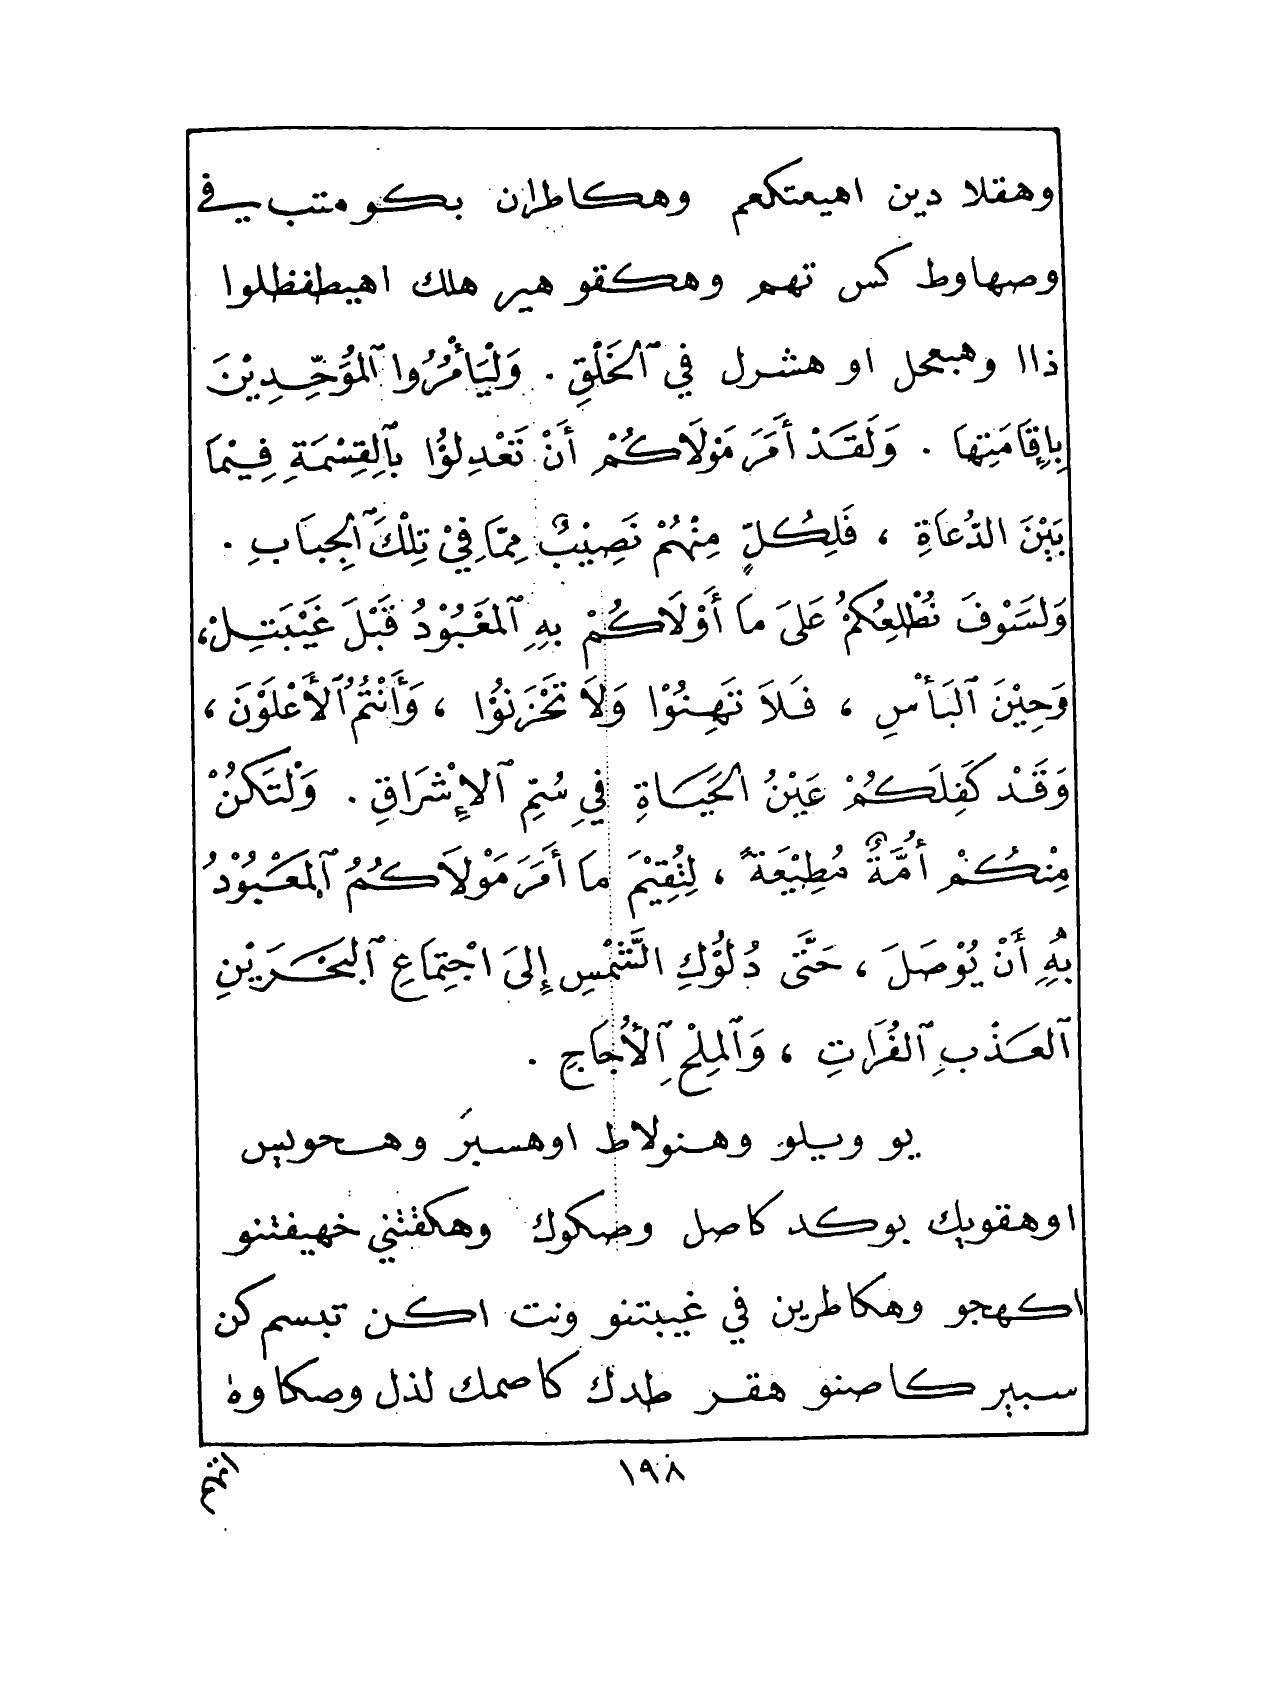 وهقلا دين اهيعتكعم وهكاطران بكو متب في
وصهاوط كس تهم وهكقو هير هلك اهيطفظلوا
ذاا وهبعحل او هشرل في ٱلخَلْقِ . وَلْيَأْمُرُوا ٱلمُوَحِّدِيْنَ
بِإِقَامَتِها . وَلَقَدْ أَمَرَ مَوْلَاكُمْ أَنْ تَعْدِلُؤُا بِٱلقِسْمَةِ فِيْمَا
بَيْنَ الدُّعَاةِ ، فَلِكُلٍّ مِنْهُمْ نَصِيْبٌ مِمَّا فِيْ تِلْكَ ٱلجِبَابِ .
وَلَسَوْفَ نُطْلِعُكُمْ عَلىَ مَا أَوْلَاكُمْ بِهِ ٱلمَعْبُوْدُ قَبْلَ غَيْبَتِهِ ،
وَحِيْنَ ٱلبَأْسِ ، فَلَا تَهِنُوْا وَلَا تَحْزَنُوْا ، وَأَنْتُمُ ٱلأَعْلَوْنَ ،
وَقَدْ كَفِلَكُمْ عَيْنُ الحَيَاةِ فِي سُتُمِّ ٱلاِشْرَاقِ . وَلْتَكُنْ
مِنْكُمْ أُمَّةٌ مُطِيْعَةً ، لِتُقِيْمَ مَا أَمَرَ مَوْلَاكُمُ ٱلمَعْبُوْدُ
بِهِ أَنْ يُوْصَلَ ، حَتَّى دُلُوْكِ الشَّمْسِ إِلىَ اجْتِمَاعِ ٱلبَحْرَيْنِ
ٱلعَذْبِ ٱلفُرَاتِ ، وَٱلمِلْحِ ٱلأُجَاجِ .
يو ويلو وهنولاط اوهسير وهحويس
اوهقويك بوكد كاصل وصكوك وهكفثني خهيفتنو
اكهجو وهكاطرين في غيبتنو ونت اكن تبسم كن
سبير كاصنو هقر طدك كاصمك لذل وصكاوه
١٩٨